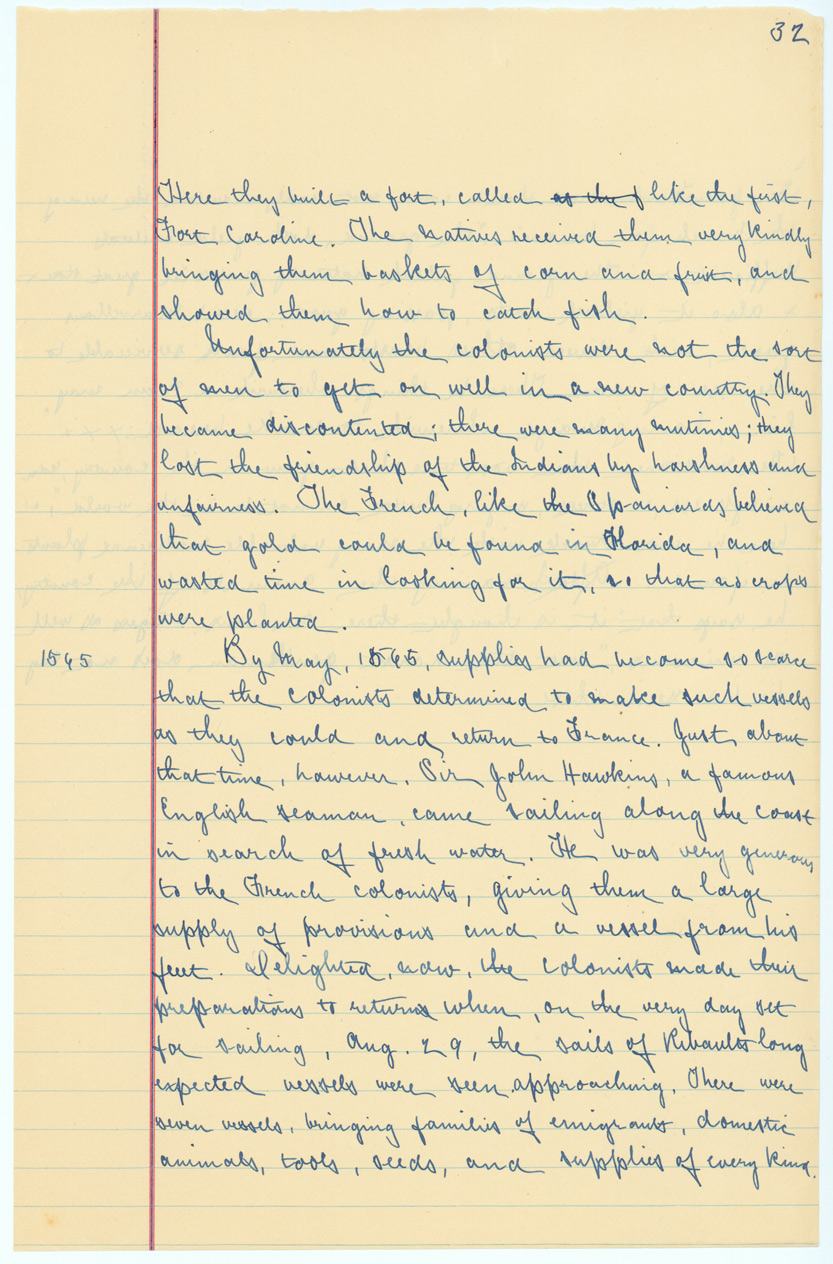 32
Here they built a fort, called as the f like the first,
Fort Caroline. The natives received them very kindly
bringing them baskets of corn and fruit, and
showed them how to catch fish.
Unfortunately the colonists were not the sort
of men to get on well in a new country. They
became discontented; there were many mutinies; they
lost the friendship of the Indians by harshness and
unfairness. The French, like the Spaniards believed
that gold could be found in Florida, and
wasted time in looking for it, so that no crops
were planted.
1565 By May, 1565, supplies had become so scarce
that the colonists determined to make such vessels
as they could and return to France. Just about
that time, however, Sir John Hawkins, a famous
English seaman, came sailing along the coast
in search of fresh water. He was very generous
to the French colonists, giving them a large
supply of provisions and a vessel from his
fleet. Delighted, now, the colonists made their
preparations to return when, on the very day set
for sailing, Aug. 29, the sails of Ribault's long
expected vessels were seen approaching. There were
seven vessels, bringing families of emigrants, domestic
animals, tools, seeds, and supplies of every kind.